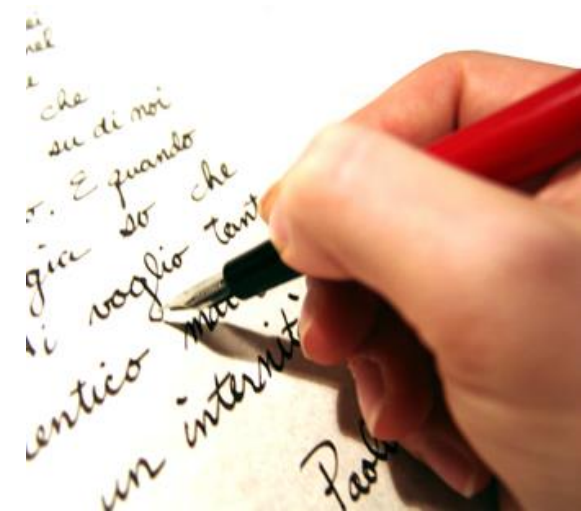 che
su di noi
o. E quando
so che
di voglio tant
entico mai
un internit
Paol